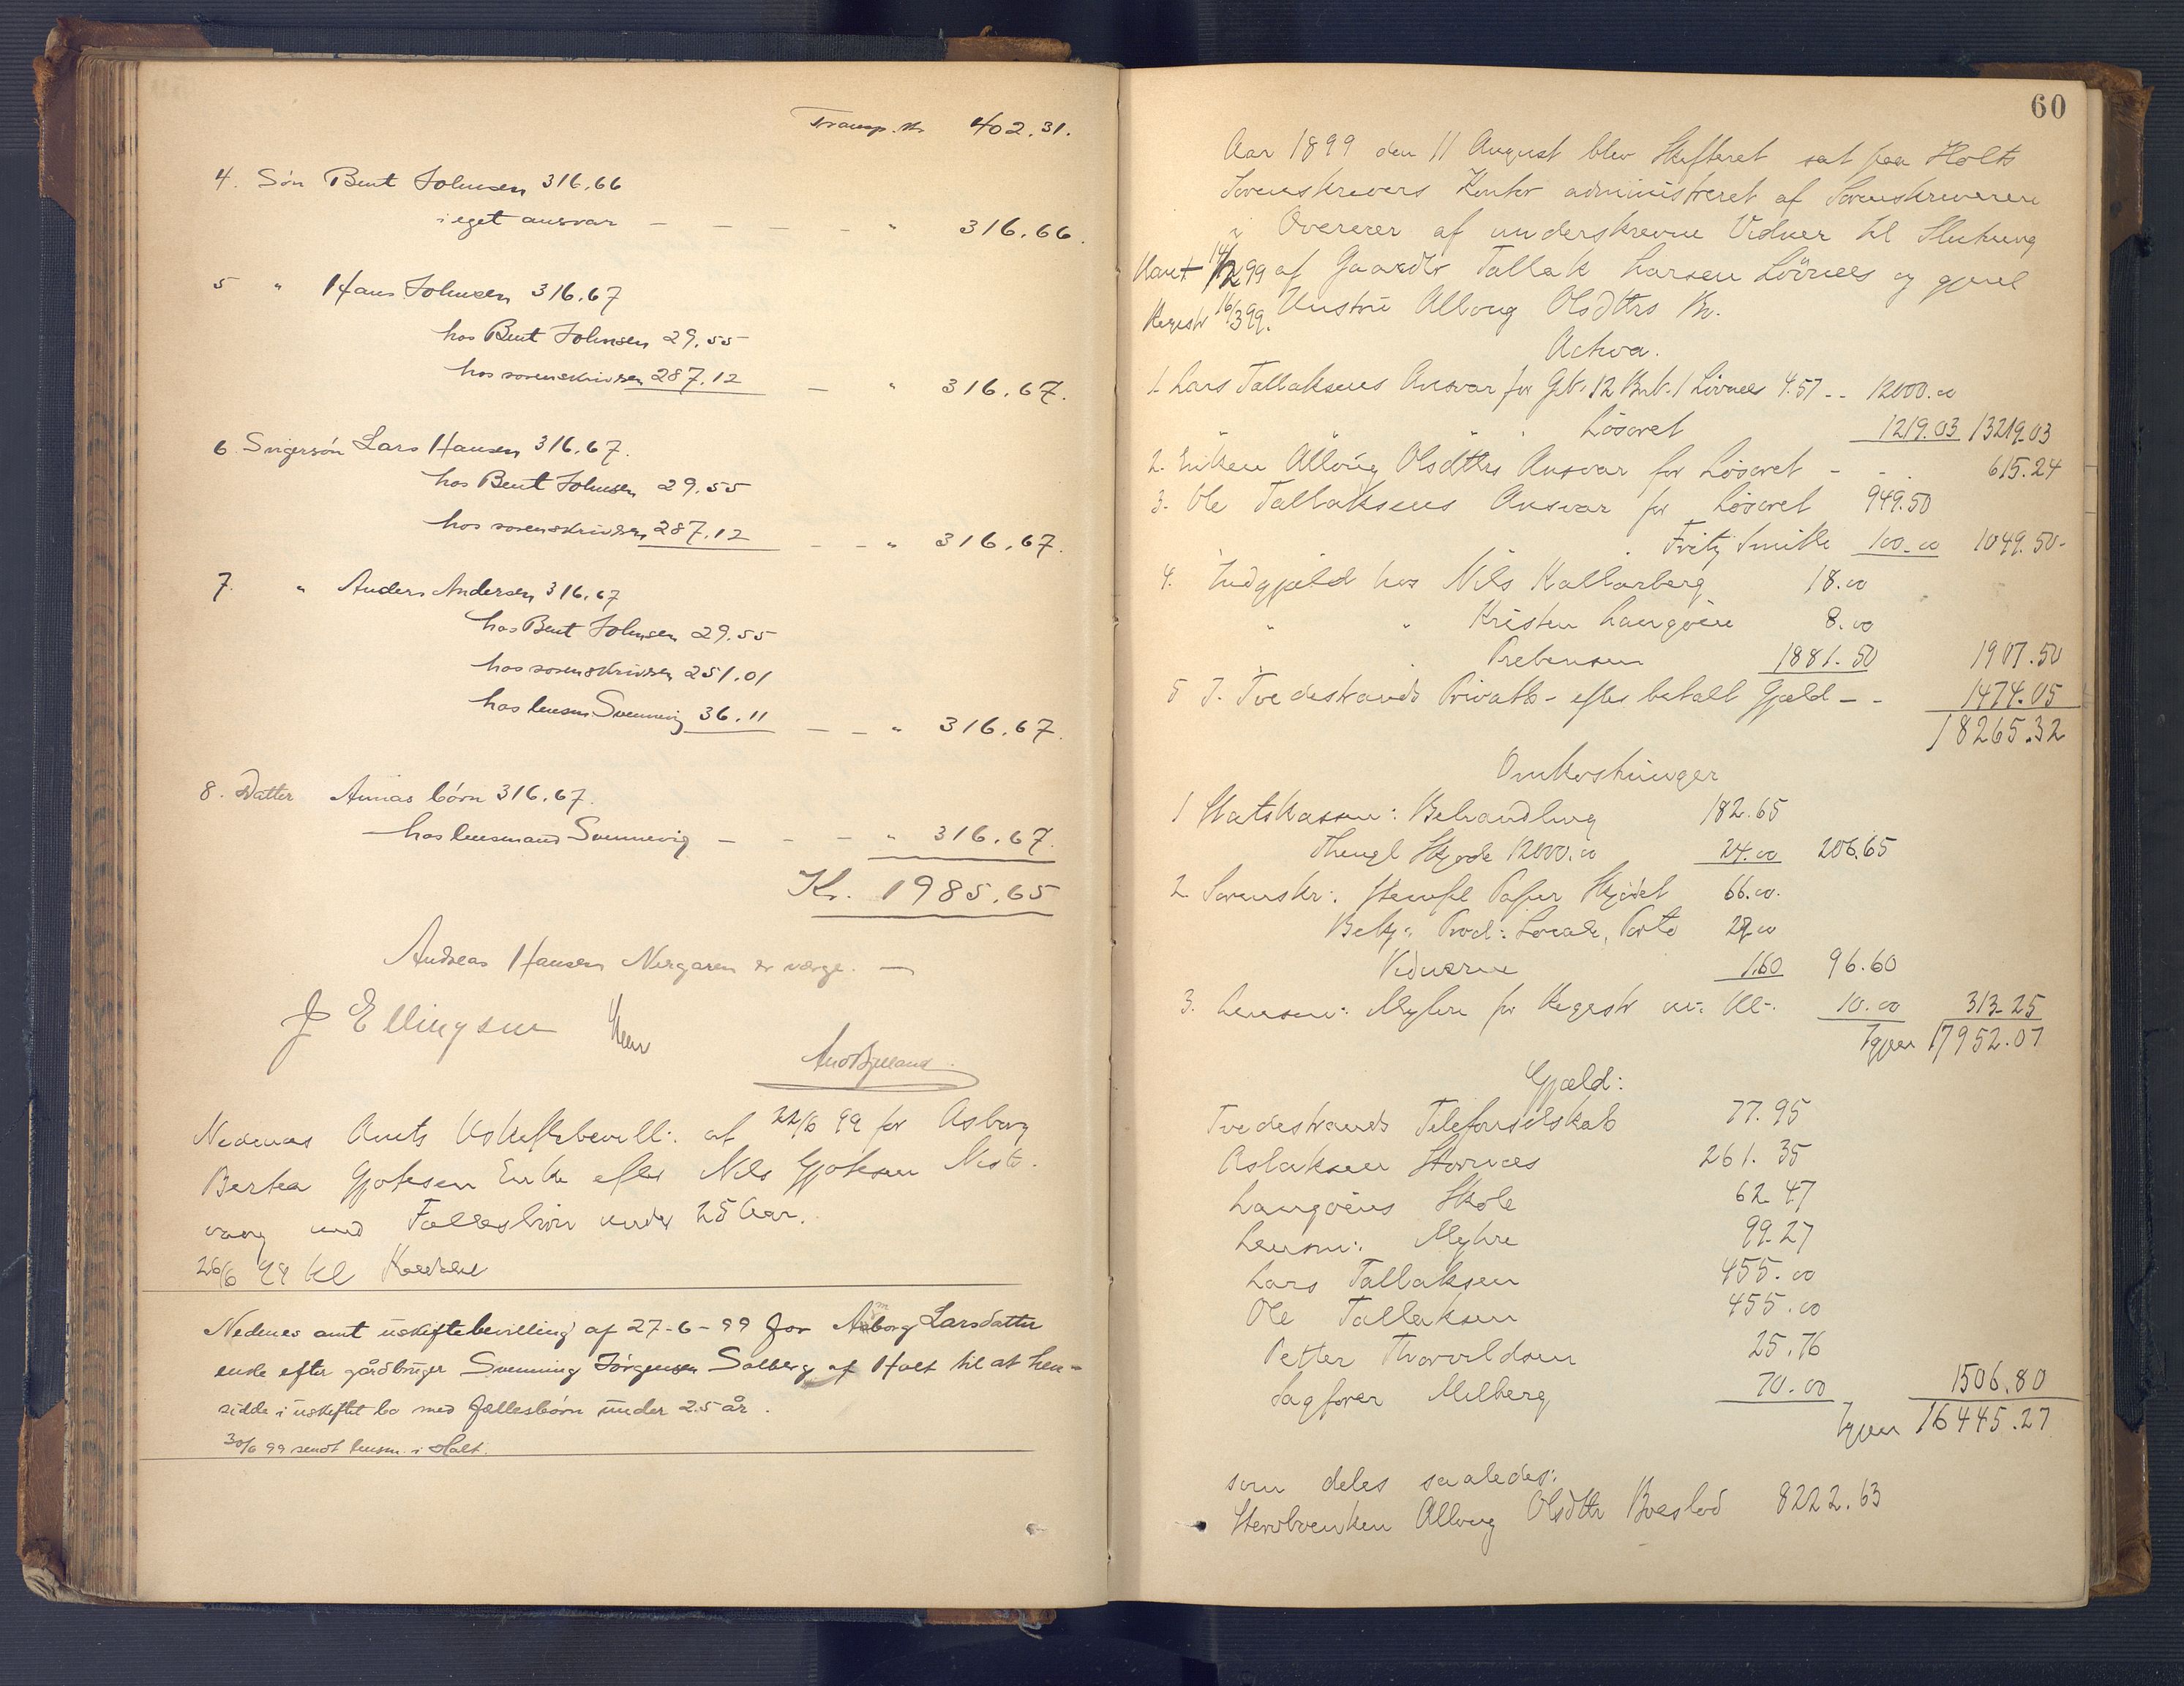 Transp. Kr 402.31.
4. Søn Bent Johnsen 316.66
i eget ansvar — — — — " 316.66.
5 " Hans Johnsen 316.67
hos Bent Johnsen 29.55
hos sorenskriveren 287.12 — " 316.67.
6 Svigersøn Lars Hansen 316.67.
hos Bent Johnsen 29.55
hos sorenskriveren 287.12 — — " 316.67.
7. " Anders Andersen 316.67
hos Bent Johnsen 29.55
hos sorenskriveren 251.01
hos lensm Svennevig 36.11 — — " 316.67.
8. Datter Annas börn 316.67.
hos lensmand Svennevig — — — " 316.67.
Kr. 1985.65
Andreas Hansen er værge. —
J Ellingsen
Nedenes Amts Uskiftebevill: af 22/6 99 for Asborg
Bertea Gjotesen Enke efter Nils Gjotesen
vaag med Fællesbörn under 25 Aar.
26/6 99 kl
Nedenes amt uskiftebevilling af 27-6-99 for Aaborg Larsdatter
enke efter gårdbruger Svenning Jörgensen Solberg af Holt til at hen=
sidde i uskiftet bo med fællesbörn under 25 år.
30/6 99 sendt lensm. i Holt.
60
Aar 1899 den 11 August blev Skifteret sat paa Holts
Sorenskrivers Kontor administreret af Sorenskriveren
i Overvær af underskrevne Vidner til Slutning
af Gaardbr Tallak Larsen Lövnes og gjenl
Registr 16/3 99. Hustru Alloug Olsdtrs Bo.
Activa.
1. Lars Tallaksens Ansvar for Gb. 12 Bnb. 1 Lövnes 4.57 -- 12000.00
" " " Lösöret 1219.03 13219.03
2. Enken Alloug Olsdtrs Ansvar for Lösöret - - 615.24
3. Ole Tallaksens Ansvar for Lösöret 949.50
Fritz Smith 100.00 1049.50-
4. Indgjæld hos Nils Kallarberg 18.00
" " Kristen Langöien 8.00
" Prebensen 1881.50 1907.50
5 I Tvedestrands Privatb- efter betalt Gjæld - - 1474.05
18265.32
Omkostninger
1 Statskassen: Behandling 182.65
Thingl Skjøde 12000.00 24.00 206.65
2. Sorenskr: Stempl Papir Skjødet 66.00.
Bekj: Procl: Locale, Porto 29.00
Vidnerne 1.60 96.60
3. Lensm: Myhre for Registr m: V: 10.00 313.25
Igjen 17952.07
Gjæld:
Tvedestrands Telefonselskab 77.95
Aslaksen Stornæs 261.35
Langöiens Skole 62.47
Lensm: Myhre 99.27
Lars Tallaksen 455.00
Ole Tallaksen 455.00
Petter Thorvaldsen 25.76
Sagfører Milberg 70.00 1506.80
Igjen 16445.27
som deles saaledes:
Stervboenken Alloug Olsdtr Boeslod 8222.63